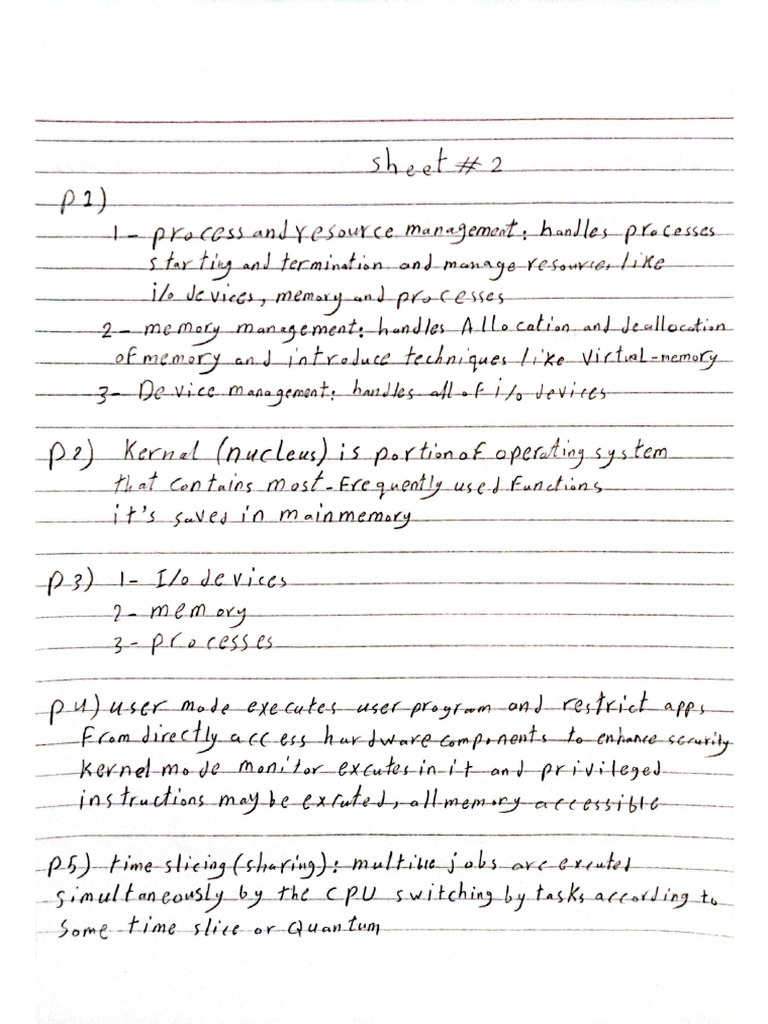 sheet # 2
P1)
1- process and resource management: handles processes
starting and termination and manage resource, like
i/o devices, memory and processes
2- memory management: handles Allocation and deallocation
of memory and introduce techniques like virtual-memory
3- Device management: handles all of i/o devices
P2) Kernel (nucleus) is portion of operating system
that contains most-frequently used functions
it's saved in main memory
P3) 1- I/o devices
2- memory
3- processes
P4) user mode executes user program and restrict apps
From directly access hardware components to enhance security
Kernel mode monitor excutes in it and privileged
instructions may be excuted, all memory accessible
P5) time slicing (sharing): multible jobs are excuted
simultaneously by the CPU switching by tasks according to
some time slice or Quantum